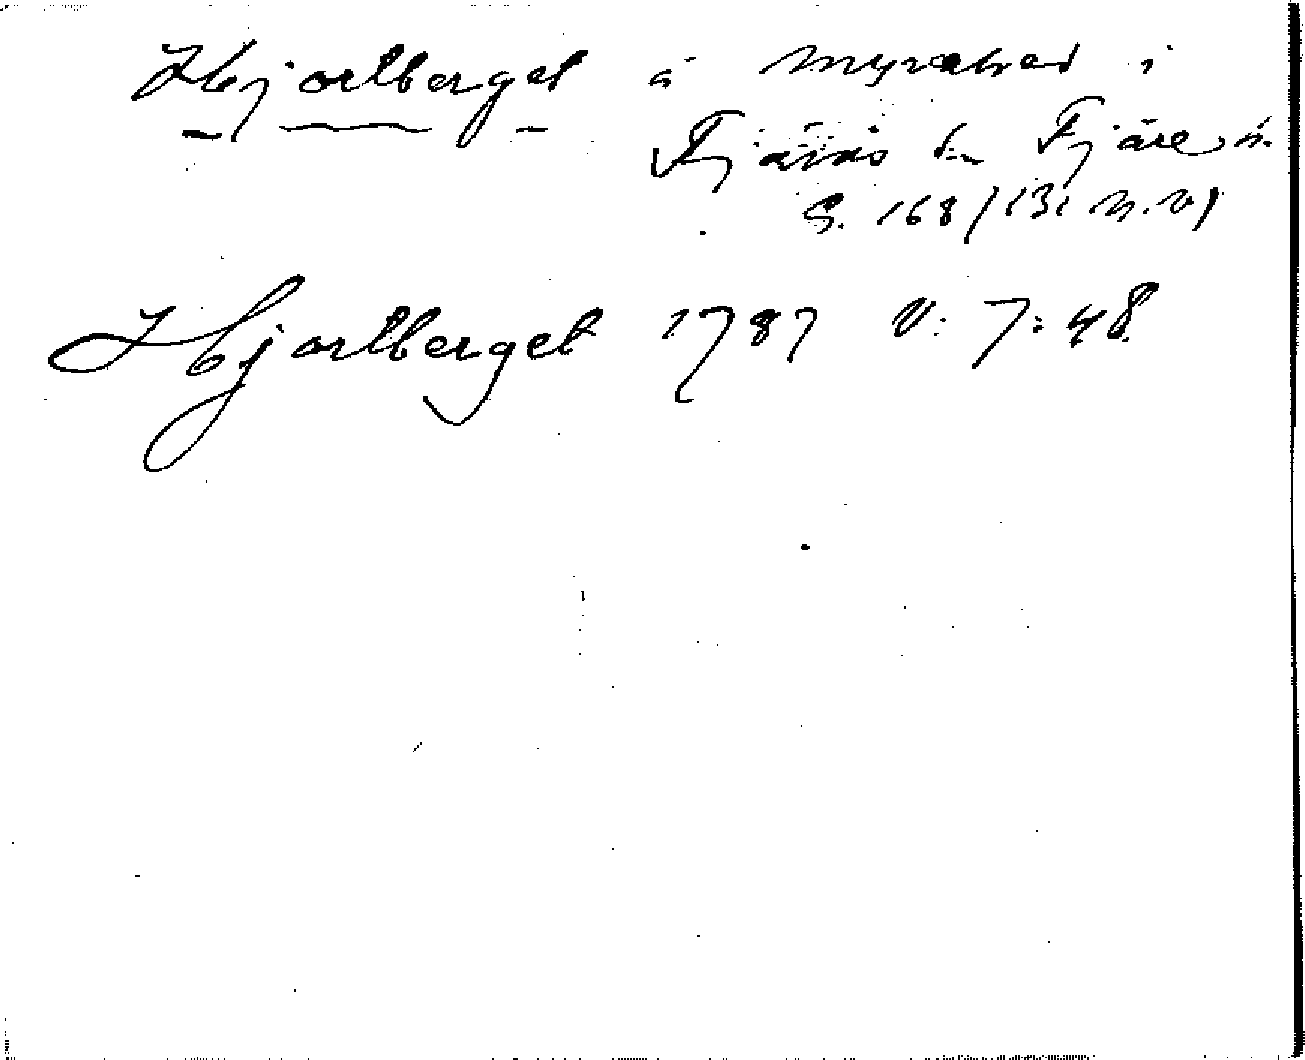 Hjortberget å Myrebred i
Fjärås sn Fjäre h.
G. 168/131 N.V)
Hjortberget 1787 V: 7:48.